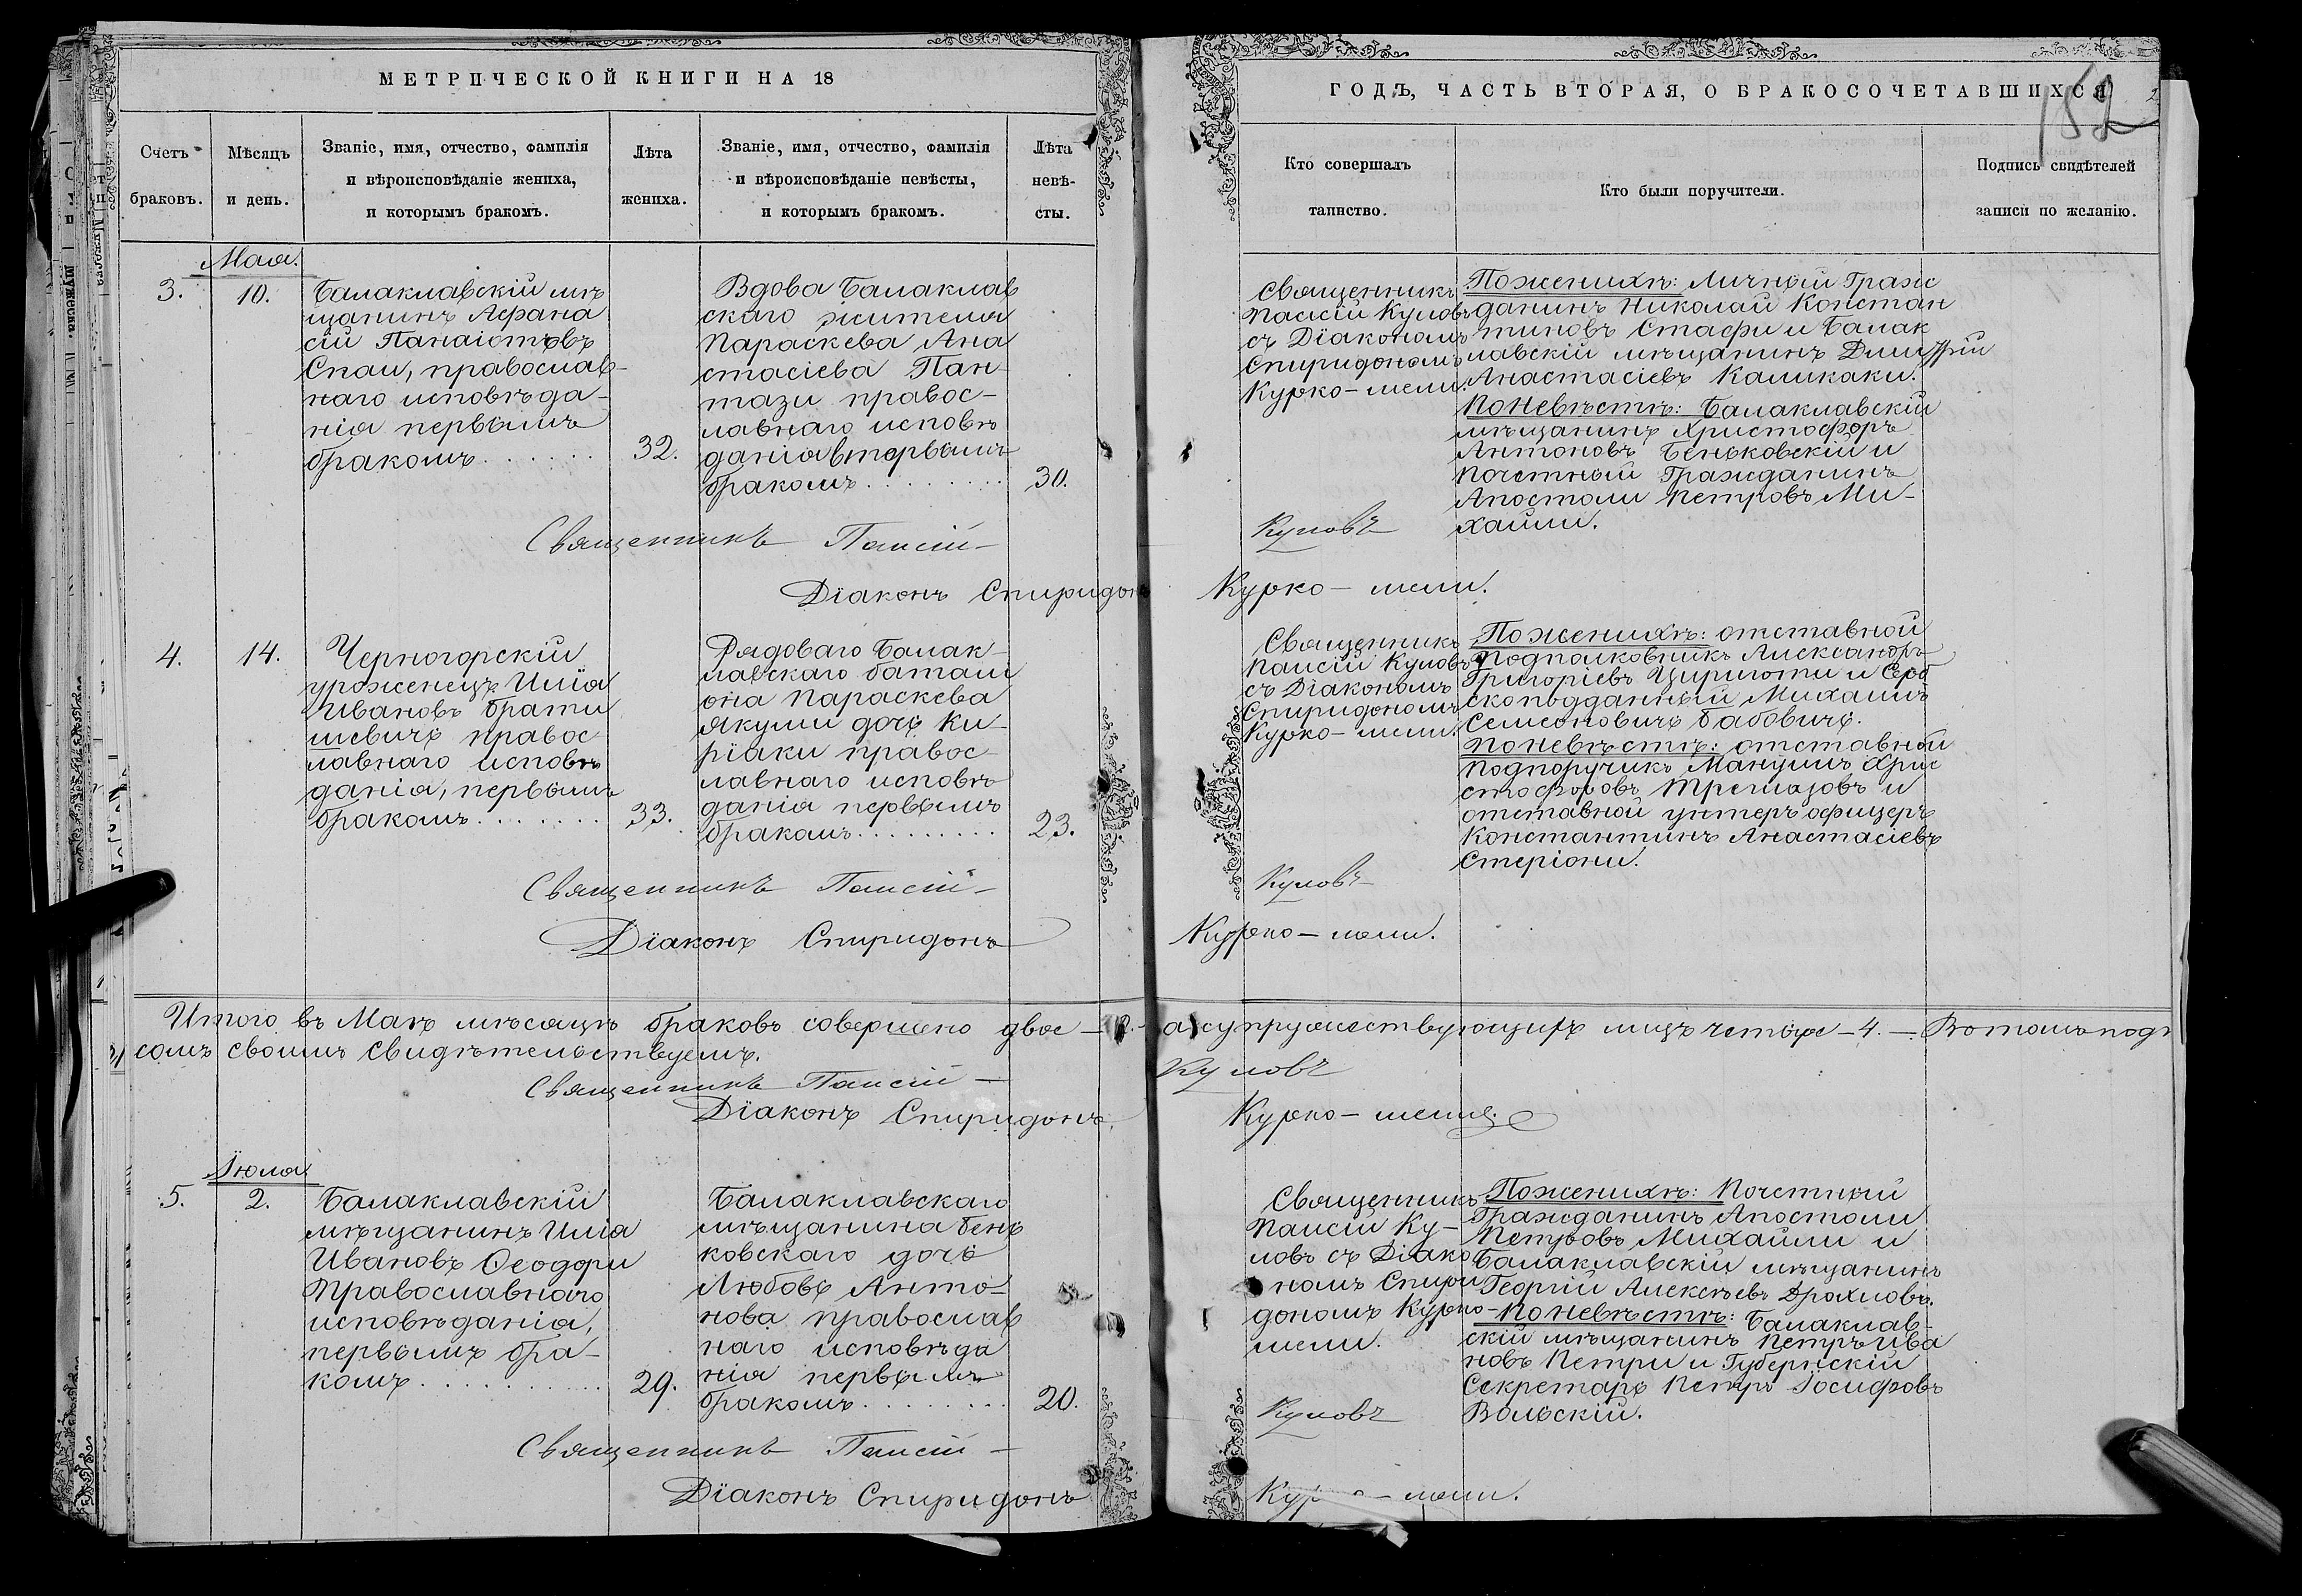 МЕТРИЧЕСКОЙ КНИГИ НА 18
Счетъ
браковъ.
Мѣсяцъ
и день.
Званіе, имя, отчество, фамилія
и вѣроисповѣданіе жениха,
и которымъ бракомъ.
Лѣта
жениха.
Званіе, имя, отчество, фамилія
и вѣроисповѣданіе невѣсты,
и которымъ бракомъ.
Лѣта
невѣ-
сты.
ГОДЪ, ЧАСТЬ ВТОРАЯ, О БРАКОСОЧЕТАВШИХСЯ
152
Кто совершалъ
таинство.
Кто были поручители.
Подпись свидѣтелей
записи по желанію.
Мая.
3.
10.
Балаклавскій мѣ
щанинъ Афана
сій Панаіотовъ
Спаи, православ-
наго исповѣда-
нія первымъ
бракомъ.......
32.
Вдова Балаклав
скаго жителя
Параскева Ана
стасіева Пан-
тази правос-
лавнаго исповѣ
данія вторымъ
бракомъ.........
30.
Священникъ
Паисій Куловъ
съ Діакономъ
Спиридономъ
Курко-мели.
По женихѣ: Личный Граж
данинъ Николай Констан
тиновъ Стафи и Балак
лавскій мѣщанинъ Димитрій
Анастасіевъ Каликаки.
По невѣстѣ: Балаклавскій
мѣщанинъ Христофоръ
Антоновъ Беньковскій и
Почетный Гражданинъ
Апостоли Петровъ Ми-
хайли.
Священникъ Паисій- Куловъ
Діаконъ Спиридонъ Курко-мели.
4.
14.
Черногорскій
уроженецъ Илія
Ивановъ Брати
шевичъ правос
лавнаго исповѣ
данія, первымъ
бракомъ.......
33.
Рядоваго Балак-
лавскаго батали
она Параскева
Якули дочь Ки-
ріаки правос-
лавнаго исповѣ
данія первымъ
бракомъ.........
23.
Священникъ
Паисій Куловъ
съ Діакономъ
Спиридономъ
Курко-мели.
По женихѣ: отставной
Подполковникъ Александръ
Григоріевъ Цириготи и Серб
скоподданный Михаилъ
Семеоновичъ Бабовичъ.
По невѣстѣ: отставной
Подпоручикъ Мануилъ Хрис
стофоровъ и
отставной унтеръ офицеръ
Константинъ Анастасіевъ
Стеріони.
Священникъ Паисій- Куловъ
Діаконъ Спиридонъ Курко-мели.
Итого въ Маѣ мѣсяцѣ браковъ совершено двое-2.-а супружествующихъ лицъ четыре-4.-Въ томъ подъ
сомъ своимъ свидѣтельствуемъ.
Священникъ Паисій- Куловъ
Діаконъ Спиридонъ Курко-мели.
Іюля
5.
2.
Балаклавскій
мѣщанинъ Илія
Ивановъ Ѳеодори
Православнаго
исповѣданія,
первымъ бра-
комъ...........
29.
Балаклавскаго
мѣщанина Бень
ковскаго дочь
Любовь Анто-
нова православ
наго исповѣда
нія первымъ
бракомъ........
20.
Священникъ
Паисій Ку-
ловъ съ Діако
номъ Спири
дономъ Курко-
мели.
По женихѣ: Почетный
Гражданинъ Апостоли
Петровъ Михайли и
Балаклавскій мѣщанинъ
Георгій Алексѣевъ Драхловъ.
По невѣстѣ: Балаклав-
скій мѣщанинъ Петръ Ива
новъ Петри и Губернскій
Секретарь Петръ Іосифовъ
Вольскій.
Священникъ Паисій- Куловъ
Діаконъ Спиридонъ Курко-мели.